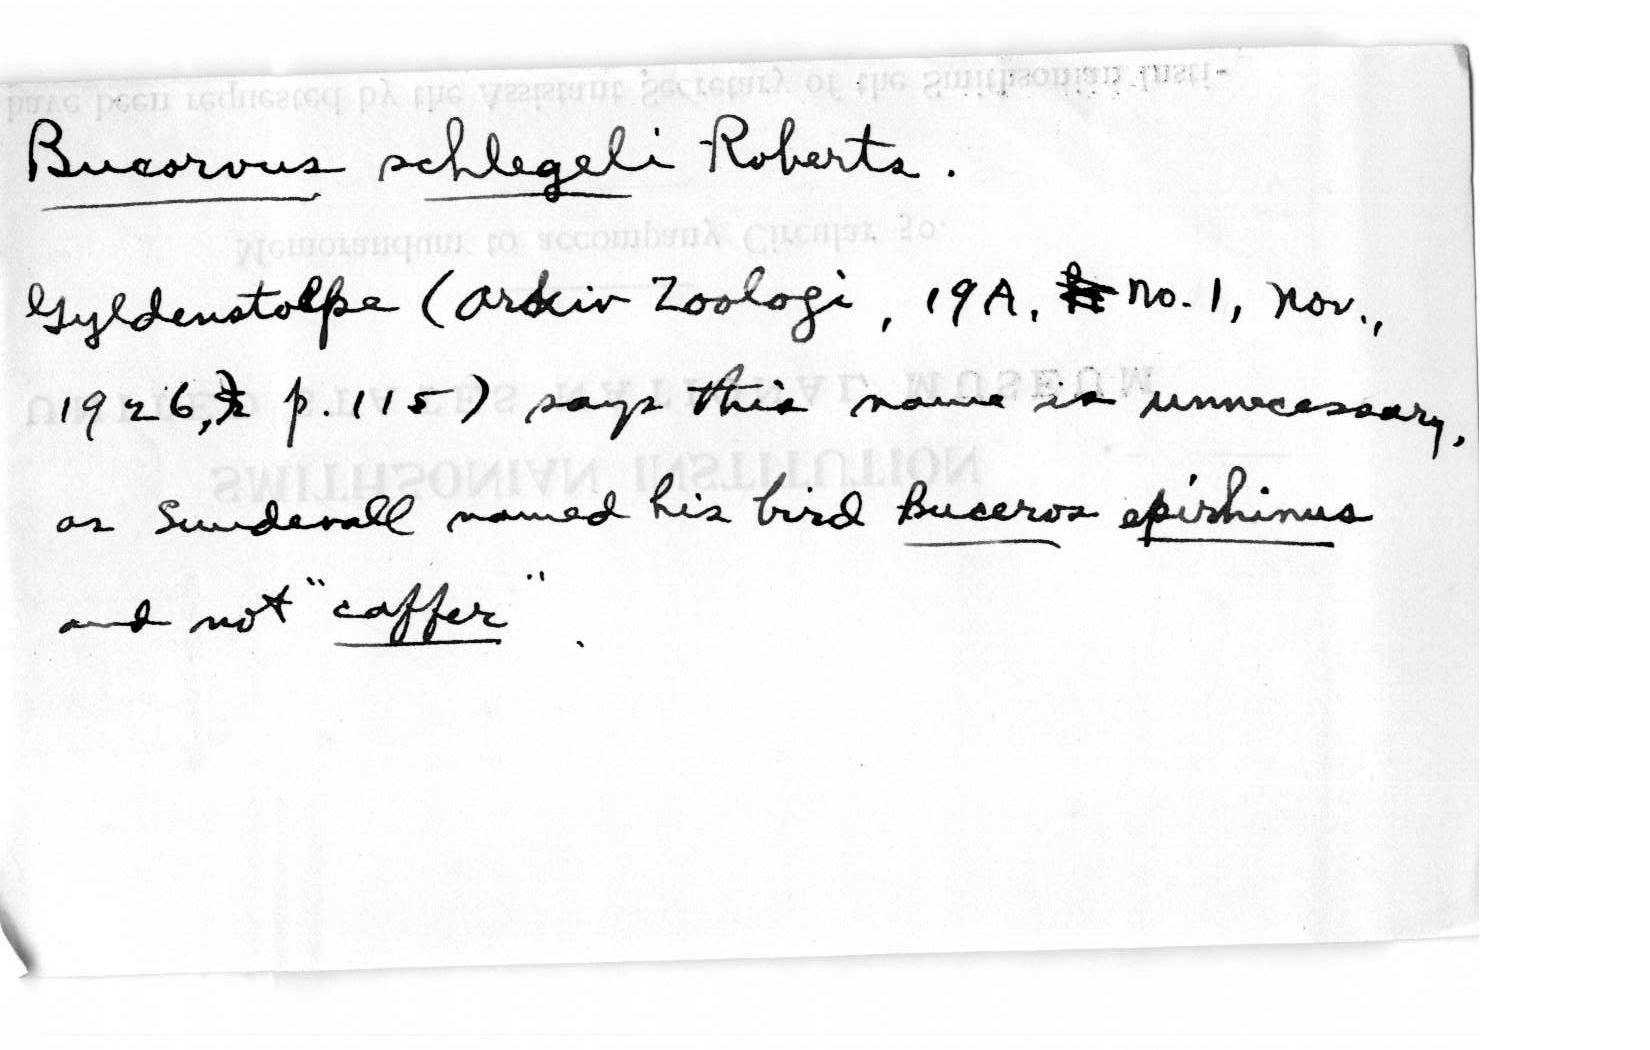 have been requested by the Assistant Secretary of the Smithsonian Insti-
Bucorvus schlegeli Roberts.
Memorandum to accompany Circular 50.
Gyldenstolpe (Arkiv Zoologi, 19A, No. 1, Nov.,
1926, p. 115) says this name is unnecessary,
UNITED STATES NATIONAL MUSEUM
SMITHSONIAN INSTITUTION
as Sundevall named his bird Buceros epirhinus
and not "caffer".